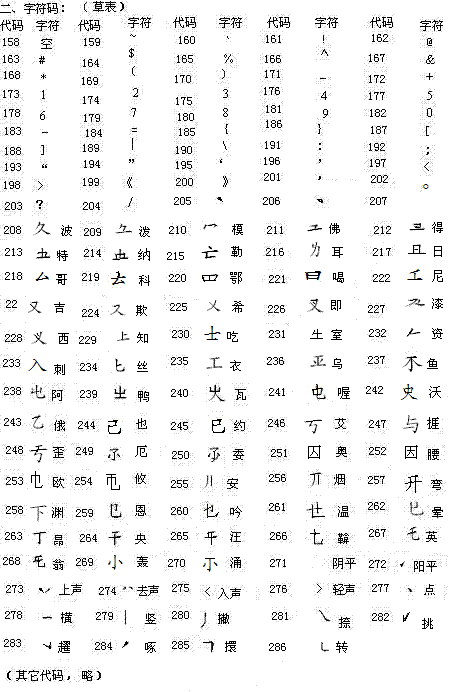 二、字符码： （草表）
代码 字符 代码 字符 代码 字符 代码 字符 代码 字符
158 空 159 ~ 160 ` 161 ! 162 @
163 # 164 $ 165 % 166 ^ 167 &
168 * 169 ( 170 ) 171 - 172 +
173 1 174 2 175 3 176 4 177 5
178 6 179 7 180 8 181 9 182 0
183 - 184 = 185 { 186 } 187 [
188 ] 189 | 190 \ 191 : 192 ;
193 “ 194 ” 195 ‘ 196 ’ 197 <
198 > 199 《 200 》 201 ， 202 。
203 ? 204 / 205 206 207
208 久 波 209 泼 210 模 211 佛 212 得
213 特 214 纳 215 亡 勒 216 耳 217 日
218 哥 219 去 科 220 四 鄂 221 喝 222 尼
22 又 吉 224 又 欺 225 㐅 希 226 叉 即 227 漆
228 义 西 229 上 知 230 士 吃 231 生 室 232 资
233 入 刺 234 匕 丝 235 工 衣 236 亚 乌 237 不 鱼
238 屯 阿 239 出 鸭 240 瓦 241 电 喔 242 史 沃
243 乙 俄 244 己 也 245 巳 约 246 丂 艾 247 与 捱
248 歪 249 厄 250 委 251 囚 奥 252 因 腰
253 欧 254 攸 255 安 256 烟 257 开 弯
258 下 渊 259 恩 260 吟 261 世 温 262 晕
263 丁 昂 264 央 265 汪 266 七 鞥 267 毛 英
268 翁 269 小 轰 270 涌 271 阴平 272 阳平
273 上声 274 去声 275 < 入声 276 > 轻声 277 点
278 一 横 279 丨 竖 280 丿 撇 281 ㇏ 捺 282 挑
283 趯 284 啄 285 擐 286 转
（其它代码，略）